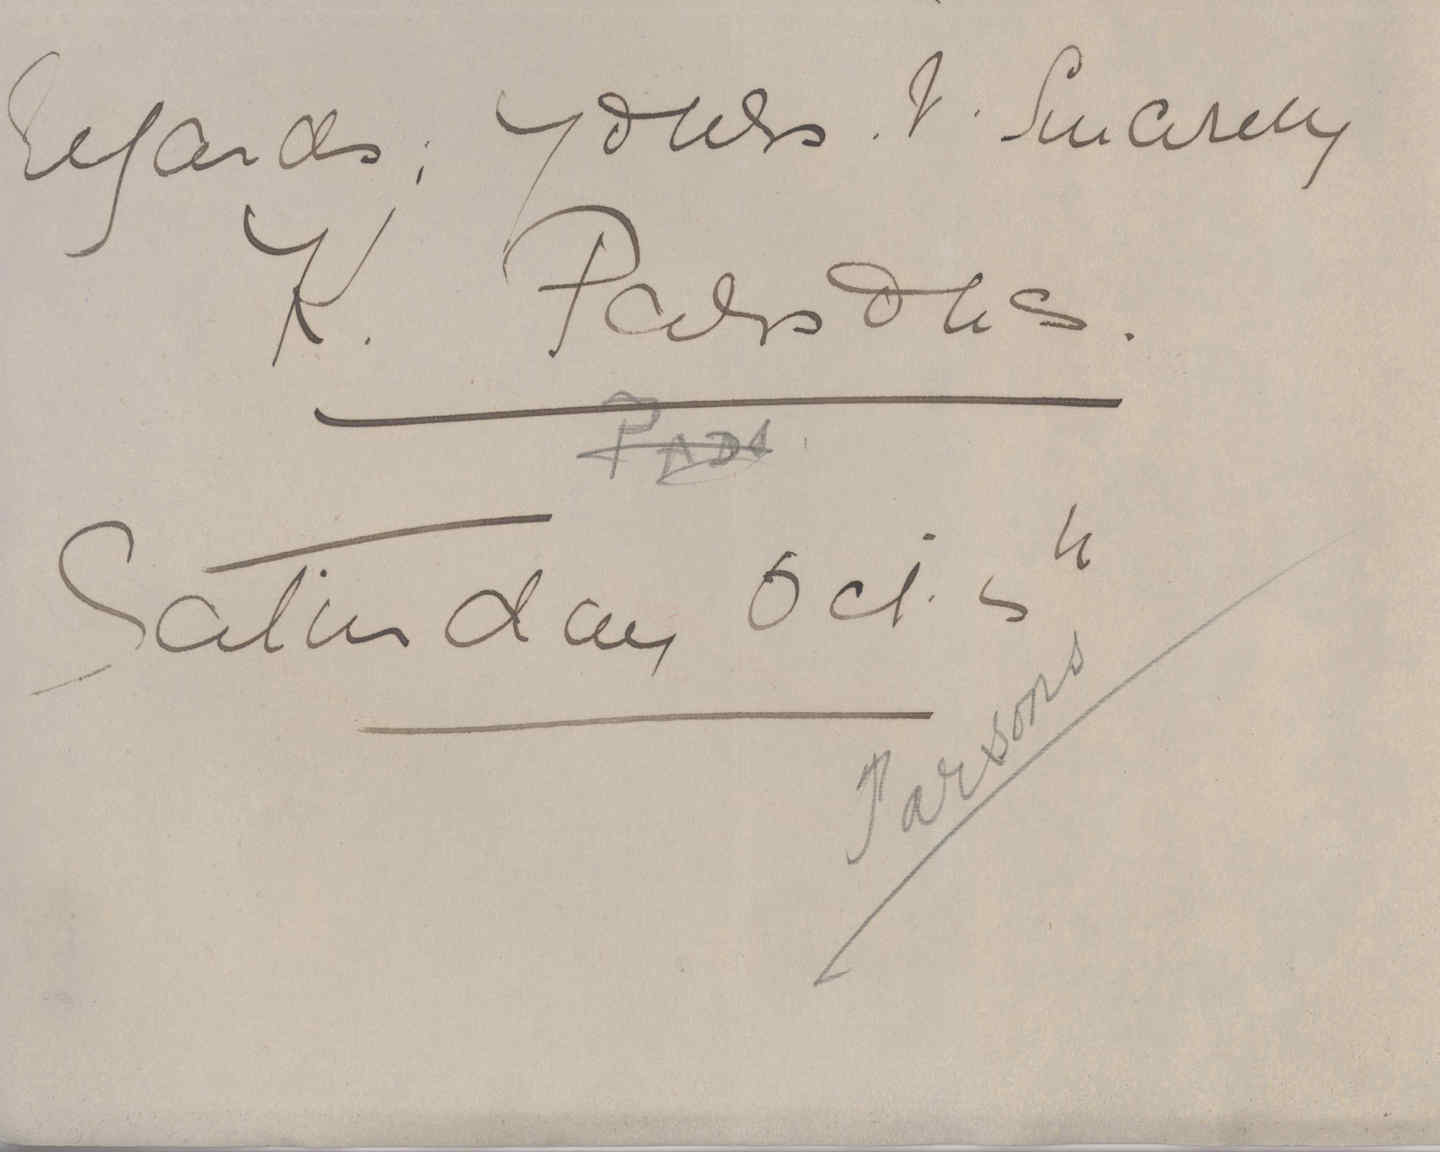 regards, yours v. Sincerely
K. Parsons.
Saturday Oct. 5th
Parsons